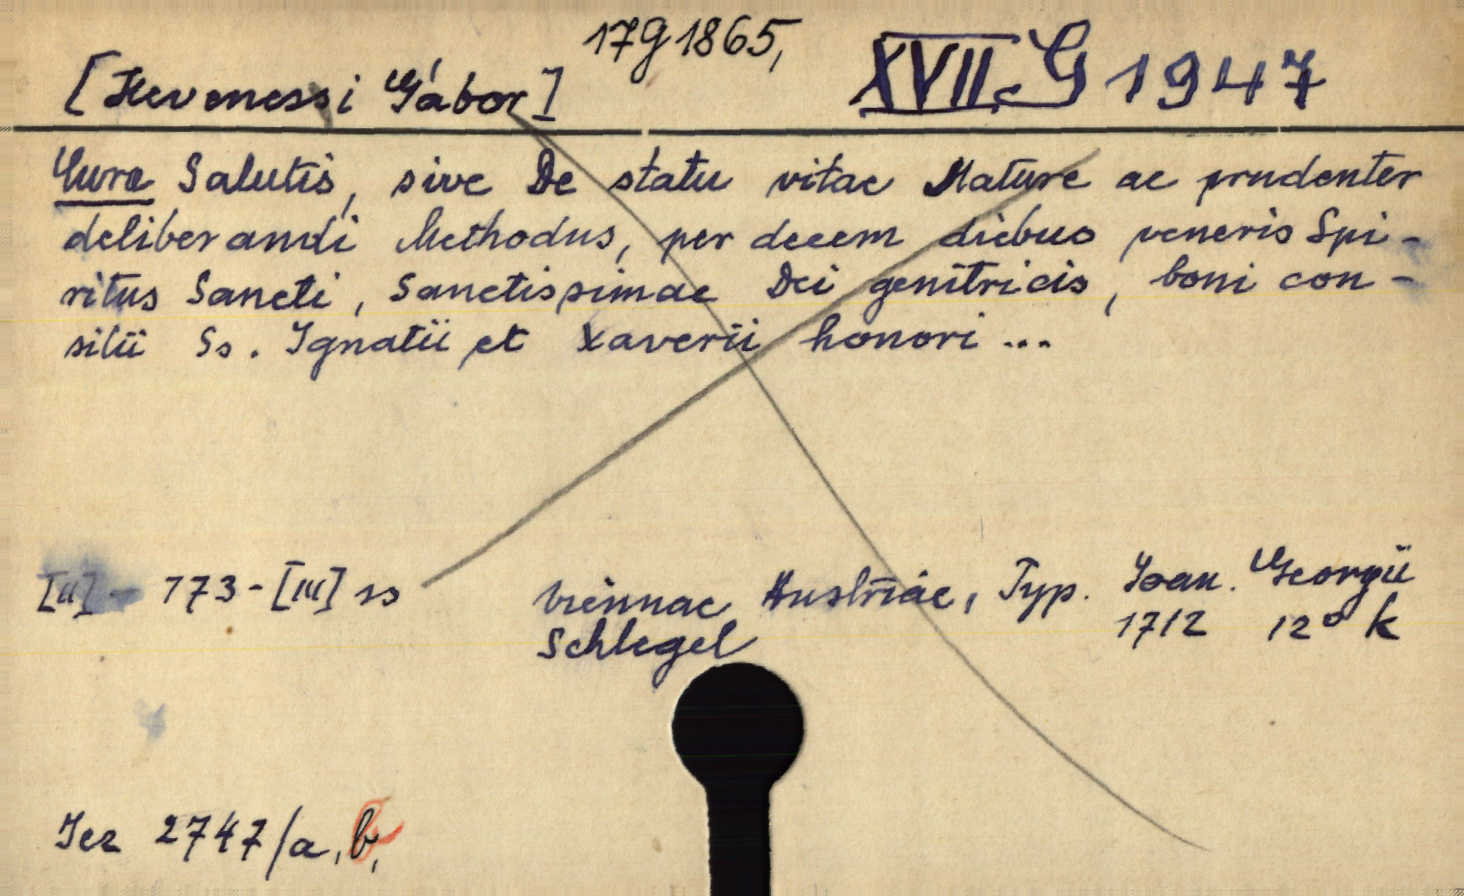 17g 1865,
[Hevenessi Gábor] XVII.c G 1947
Cura Salutis, sive De statu vitae Mature ac prudenter
deliberandi Methodus, per decem diebus veneris Spi-
ritus Sancti, Sanctissimae Dei genitricis, boni con-
silii Ss. Ignatii et Xaverii honori ...
[II] - 173 - [III] ss Viennae Austriae, Typ. Joan. Georgii
Schlegel 1712 12° k
Jez 2747/a, b,